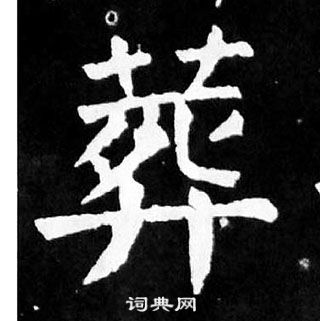 葬
词典网